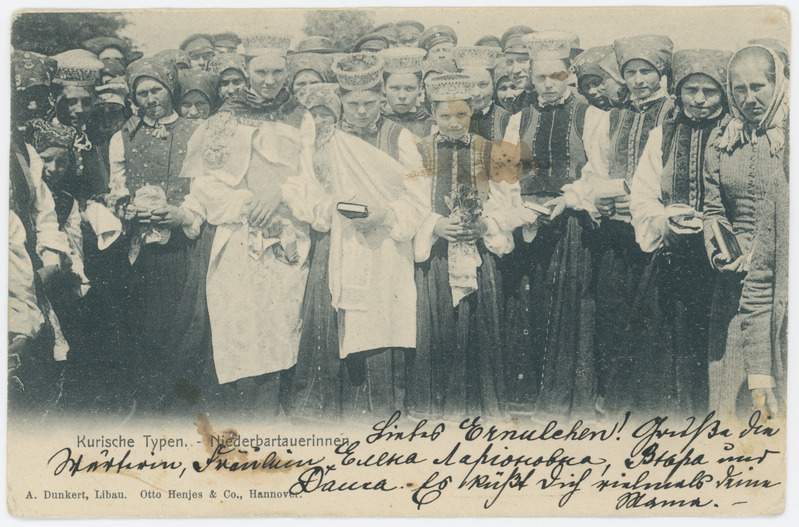 Kurische Typen. - Niederbartauerinnen.
Liebes Ernulchen! Grüße die
Wärterin, Fräulein Елена Ларионовна, und
Даша. Es küßt Dich vielmals deine
Mama. –
A. Dunkert, Libau. Otto Henjes & Co., Hannover.